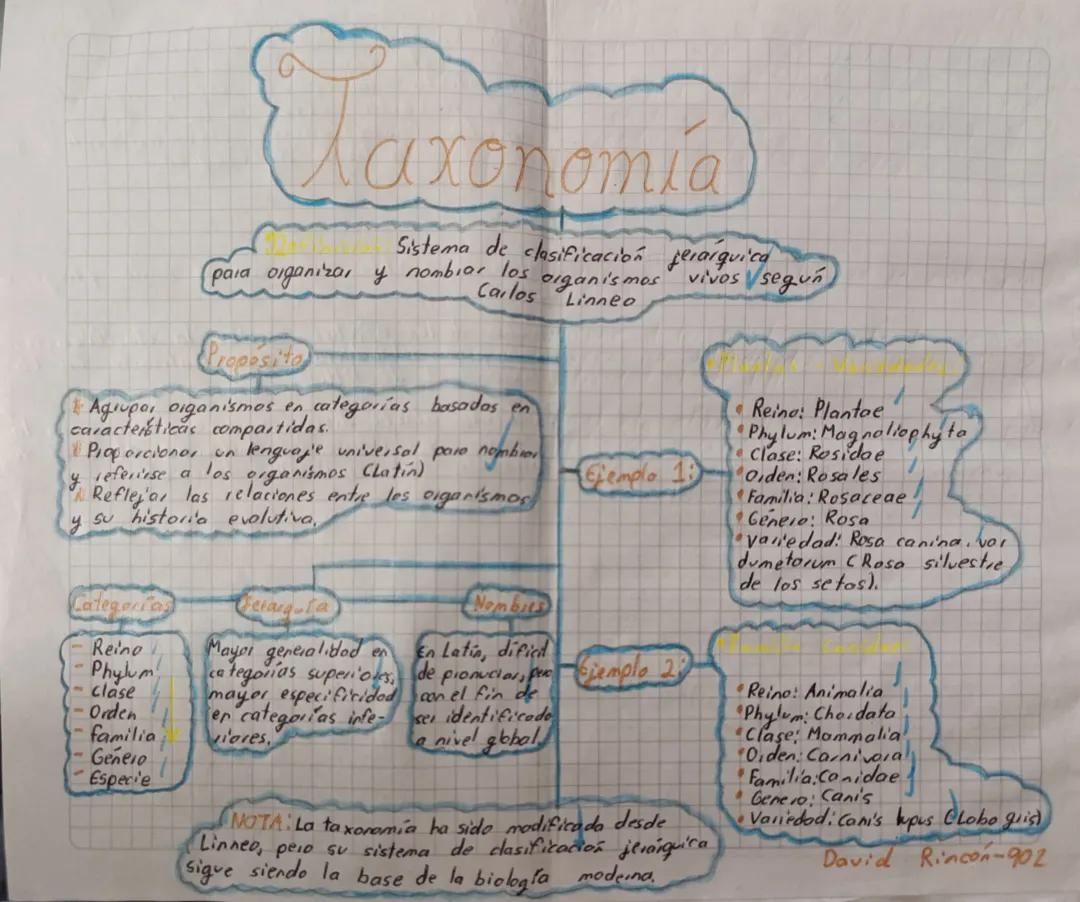 Taxonomía
Definición: Sistema de clasificación jerárquica
para organizar y nombrar los organismos vivos según
Carlos Linneo
Propósito
Agrupar organismos en categorías basadas en
características compartidas.
Proporcionar un lenguaje universal para nombrar
y referirse a los organismos (Latín)
Reflejar las relaciones entre los organismos
y su historia evolutiva.
Ejemplo 1:
Plantas - Variedades
Reino: Plantae
Phylum: Magnoliophyta
Clase: Rosidae
Orden: Rosales
Familia: Rosaceae
Género: Rosa
Variedad: Rosa canina. var
dumetorum (Rosa silvestre
de los setos).
Categorías
- Reino
- Phylum
- clase
- Orden
- familia
- Género
- Especie
Jerarquía
Mayor generalidad en
categorías superiores,
mayor especificidad
en categorías infe-
riores.
Nombres
En Latín, difícil
de pronunciar, pero
con el fin de
ser identificado
a nivel global
Ejemplo 2:
Familia Canidae
Reino: Animalia
Phylum: Chordata
Clase: Mammalia
Orden: Carnivora
Familia: Canidae
Genero: Canis
Variedad: Canis lupus (Lobo gris)
NOTA: La taxonomía ha sido modificada desde
Linneo, pero su sistema de clasificación jerárquica
sigue siendo la base de la biología moderna.
David Rincón-902